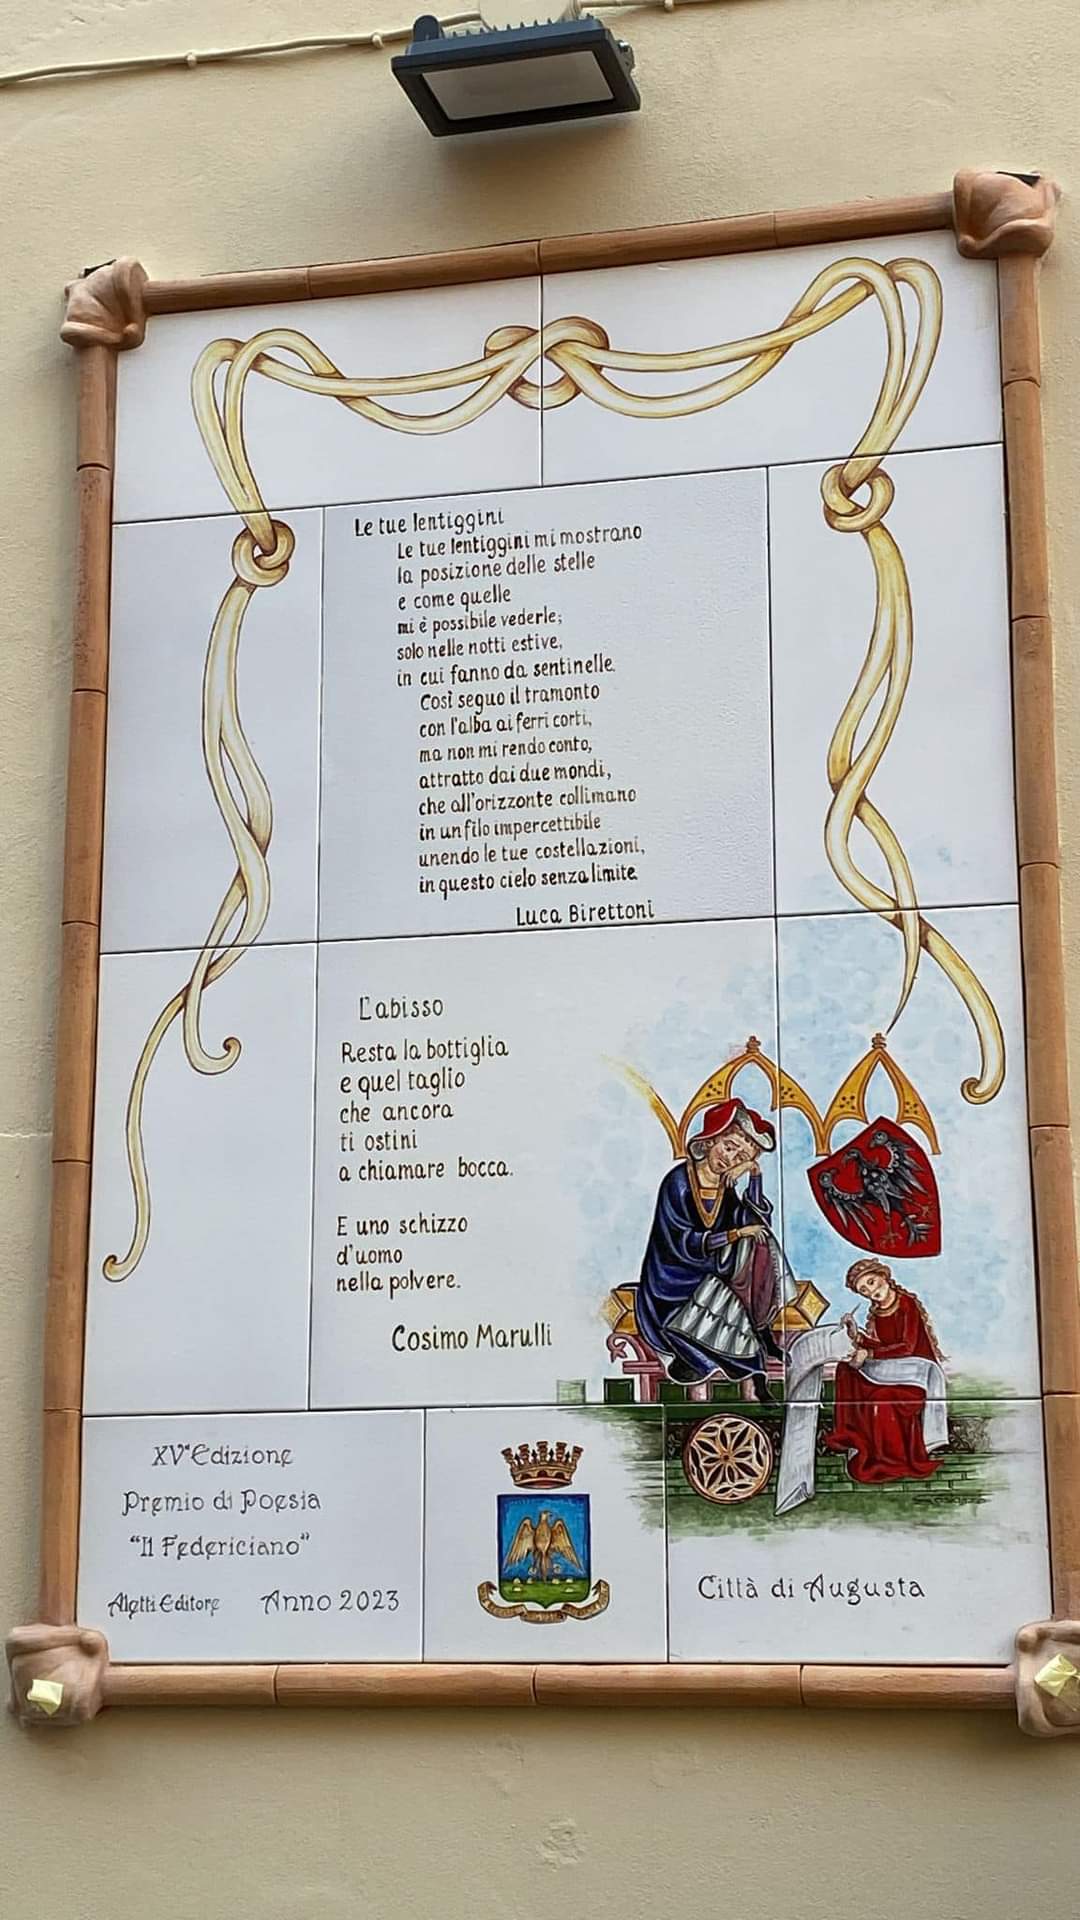 Le tue lentiggini
Le tue lentiggini mi mostrano
la posizione delle stelle
e come quelle
mi è possibile vederle;
solo nelle notti estive,
in cui fanno da sentinelle.
Così seguo il tramonto
con l'alba ai ferri corti,
ma non mi rendo conto,
attratto dai due mondi,
che all'orizzonte collimano
in un filo impercettibile
unendo le tue costellazioni,
in questo cielo senza limite.
Luca Birettoni
L'abisso
Resta la bottiglia
e quel taglio
che ancora
ti ostini
a chiamare bocca.
E uno schizzo
d'uomo
nella polvere.
Cosimo Marulli
XVª Edizione
Premio di Poesia
"Il Federiciano"
Aletti Editore Anno 2023
Città di Augusta